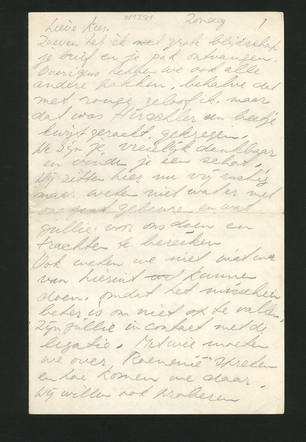 Zondag 1
Lieve Kees,
Zoeven heb ik met grote blijdschap
je brief en je pak ontvangen.
Overigens hebben we ook alle
andere pakken, behalve dat
met, geloof ik, maar
dat was een beetje
kwijt geraakt, gekregen.
We zijn je vreselijk dankbaar
en vinden je een schat.
Wij zitten hier nu vrij rustig
maar weten niet wat er met
ons gebeuren en wat
jullie voor ons doen en
trachten te bereiken
Ook weten we niet wat we
van hieruit kunnen
doen, omdat het misschien
beter is om niet op te vallen.
Zijn jullie in contact met de
legatie. Met wie moeten
we over Roemenië spreken
en hoe komen we daar.
Wij willen ook proberen